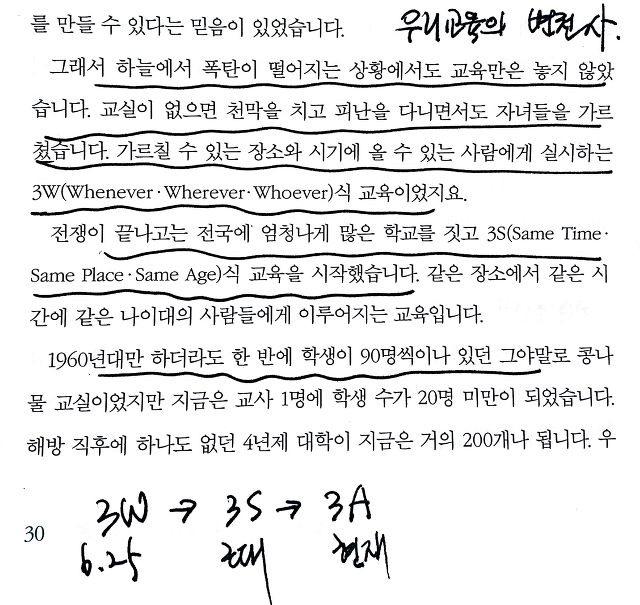 를 만들 수 있다는 믿음이 있었습니다.
우리교육의 변천사.
그래서 하늘에서 폭탄이 떨어지는 상황에서도 교육만은 놓지 않았
습니다. 교실이 없으면 천막을 치고 피난을 다니면서도 자녀들을 가르
쳤습니다. 가르칠 수 있는 장소와 시기에 올 수 있는 사람에게 실시하는
3W(Whenever·Wherever·Whoever)식 교육이었지요.
전쟁이 끝나고는 전국에 엄청나게 많은 학교를 짓고 3S(Same Time·
Same Place·Same Age)식 교육을 시작했습니다. 같은 장소에서 같은 시
간에 같은 나이대의 사람들에게 이루어지는 교육입니다.
1960년대만 하더라도 한 반에 학생이 90명씩이나 있던 그야말로 콩나
물 교실이었지만 지금은 교사 1명에 학생 수가 20명 미만이 되었습니다.
해방 직후에 하나도 없던 4년제 대학이 지금은 거의 200개나 됩니다. 우
3W → 3S → 3A
6.25 근대 현재
30